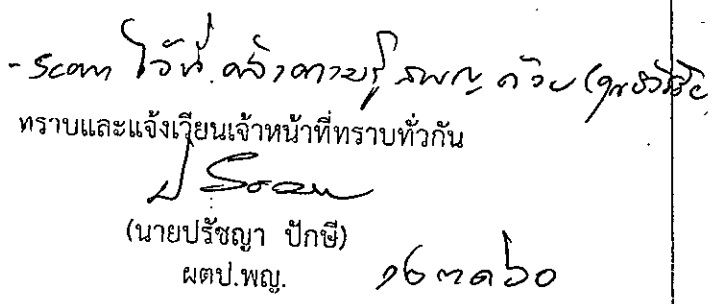 - Scan ไว้ที่ คลังความรู้ สพญ ด้วย
ทราบและแจ้งเวียนเจ้าหน้าที่ทราบทั่วกัน
(นายปรัชญา ปักษี)
ผตป.พญ.
๑๖ ตค ๖๐